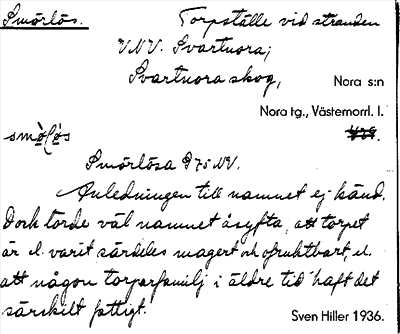 Smörlös. Torpställe vid stranden
V.N.V. Svartnora;
Svartnora skog, Nora s:n
Nora tg., Västernorrl. l.
smö̀lø̀s
Smörlösa D 75 NV.
Anledningen till namnet ej känd.
Dock torde väl namnet åsyfta, att torpet
är el. varit särdeles magert och ofruktbart, el.
att någon torparfamilj i äldre tid haft det
särskilt fattigt. Sven Hiller 1936.